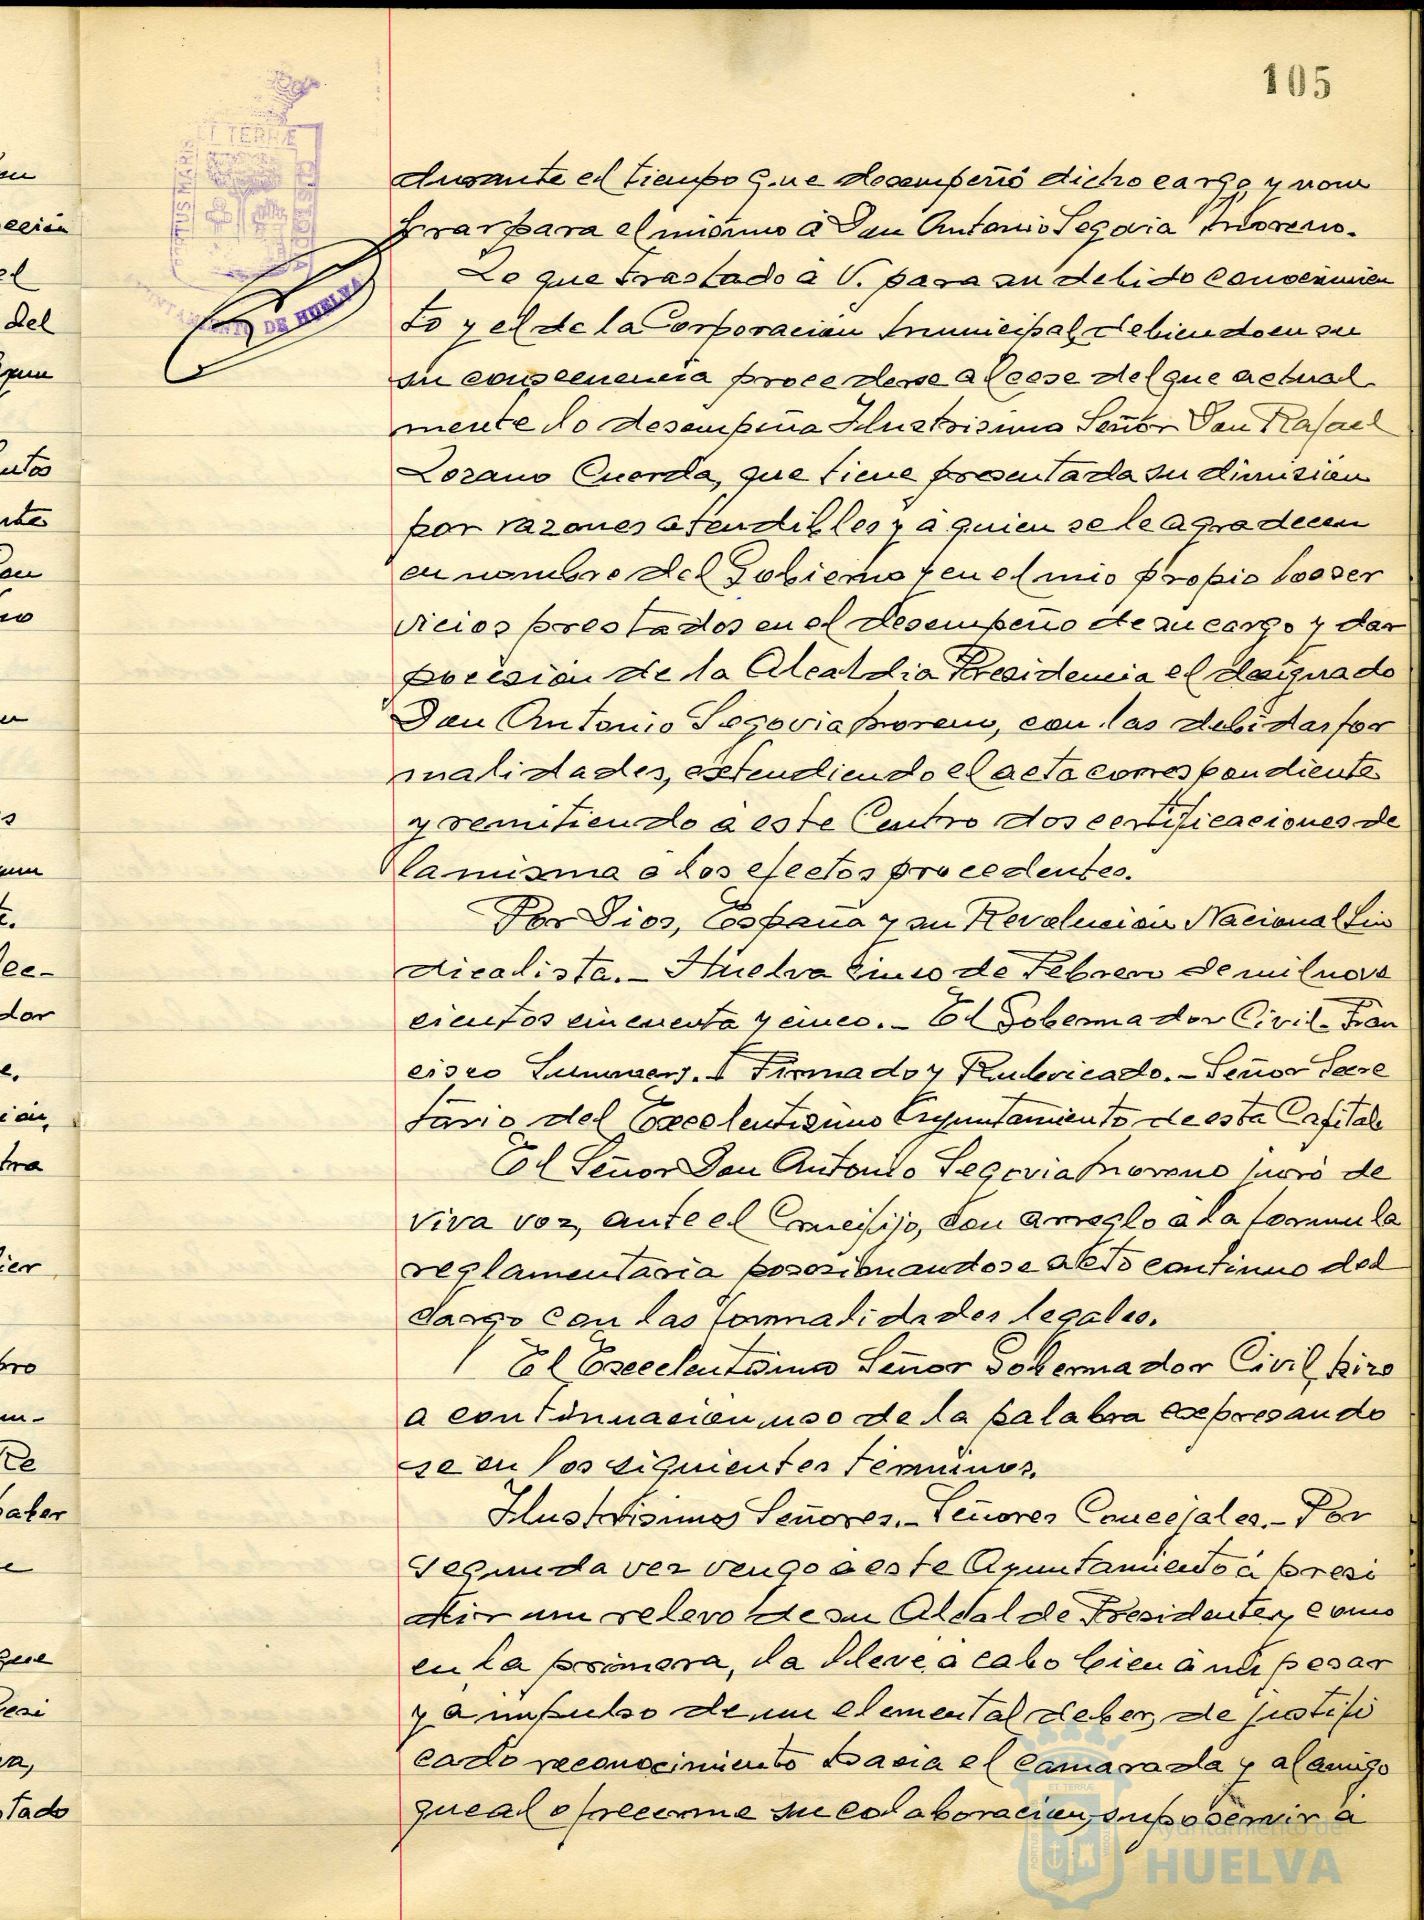 105
PORTUS MARIS ET TERRÆ CUSTODIA
AYUNTAMIENTO DE HUELVA
durante el tiempo que desempeñó dicho cargo, y nom
brar para el mismo á Don Antonio Segovia Moreno.
Lo que traslado á V. para su debido conocimien
to y el de la Corporación Municipal, debiendo en su
su consecuencia procederse al cese del que actual
mente lo desempeña Ilustrisimo Señor Don Rafael
Lozano Cuerda, que tiene presentada su dimisión
por razones atendibles y á quien se le agradecen
en nombre del Gobierno y en el mio propio los ser
vicios prestados en el desempeño de su cargo y dar
pocesión de la Alcaldia Presidencia el designado
Don Antonio Segovia Moreno, con las debidas for
malidades, extendiendo el acta correspondiente
y remitiendo á este Centro dos certificaciones de
la misma a los efectos procedentes.
Por Dios, España y su Revolución Nacional Sin
dicalista.- Huelva cinco de Febrero de mil nove
cientos cincuenta y cinco.- El Gobernador Civil- Fran
cisco Summers. Firmado y Rubricado.- Señor Secre
tario del Excelentisimo Ayuntamiento de esta Capital.
El Señor Don Antonio Segovia Moreno juró de
viva voz, ante el Crucifijo, con arreglo á la formula
reglamentaria posesionandose acto continuo del
cargo con las formalidades legales.
El Excelentisimo Señor Gobernador Civil, hizo
a continuación uso de la palabra expresando
se en los siguientes términos.
Ilustrisimos Señores.- Señores Concejales.- Por
segunda vez vengo á este Ayuntamiento á presi
dir un relevo de su Alcalde Presidente y, como
en la primera, la lleve á cabo bien á mi pesar
y á impulso de un elemental deber, de justifi
cado reconocimiento hacia el camarada y al amigo
que al ofrecerme su colaboración, supo servir á
Ayuntamiento de
HUELVA